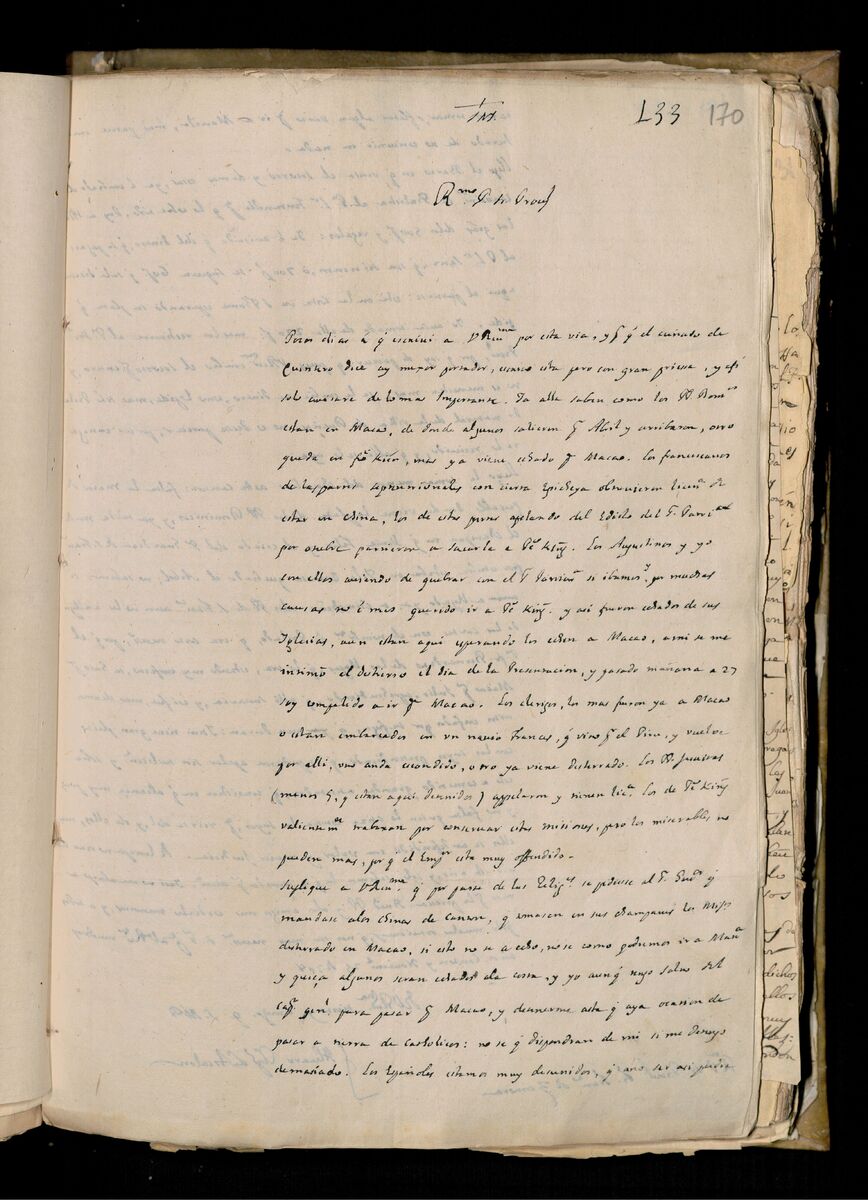 JHS.
L33 170
R.mo P. N. Prov.l
Pocos dias á q̃ escriui a VRm.a por esta via, y p.r q̃ el cuñado de
Quintero dice ay mexor portador, escriuo esta pero con gran priessa, y asi
solo auisare de lo mas importante. Ya alla saben como los PP. Rom.os
estan en Macao, de donde algunos salieron p.a Abril y arribaron, otro
queda en Kin, mas ya viene echado p.a Macao. Los franciscanos
de las partes septentrionales con cierta Epicheya obtuuieron licen.a de
estar en China, los de estas partes apelando del Edicto del S. Patri.ca
por octubre partieron a sacarla a Pe Kiñ. Los Augustinos y yo
con ellos auiendo de quebrar con el S. Patriar.a si ibamos, y por muchas
causas no emos querido ir a Pe Kiñ. y asi fueron echados de sus
Iglesias, aun estan aqui esperando los echen a Macao, a mi se me
intimó el destierro el dia de la Presentacion, y pasado mañana a 27
soy compelido a ir p.a Macao. Los clerigos, los mas fueron ya a Macao
o estan embarcados en vn nauio Frances, q̃ vino p.r el Piru, y vuelue
por alli, vno anda escondido, otro ya viene desterrado. Los PP. Jesuitas
(menos 5, q̃ estan aqui detenidos) apelaron y tienen lic.a Los de Pe Kiñ
valientem.te trabaxan por conseruar estas misiones, pero los miserables no
pueden mas, por q̃ el Emp.or esta muy offendido.
Suplique a VRm.a q̃ por parte de las Relig.s se pidiesse al S. Gou.or q̃
mandase a los chinas de Canton, q̃ lleuasen en sus champanes los Miss.os
desterrados en Macao, si esto no se a echo, no se como podremos ir a Man.a
y quiça algunos seran echados a la costa, y yo aunq̃
cap.n gen.l para pasar p.a Macao, y detenerme asta q̃ aya ocasion de
pasar a tierra de catholicos: no se q̃ dispondran de mi si me detengo
demasiado. Los Españoles estamos muy desunidos, q̃ a no ser asi pudie